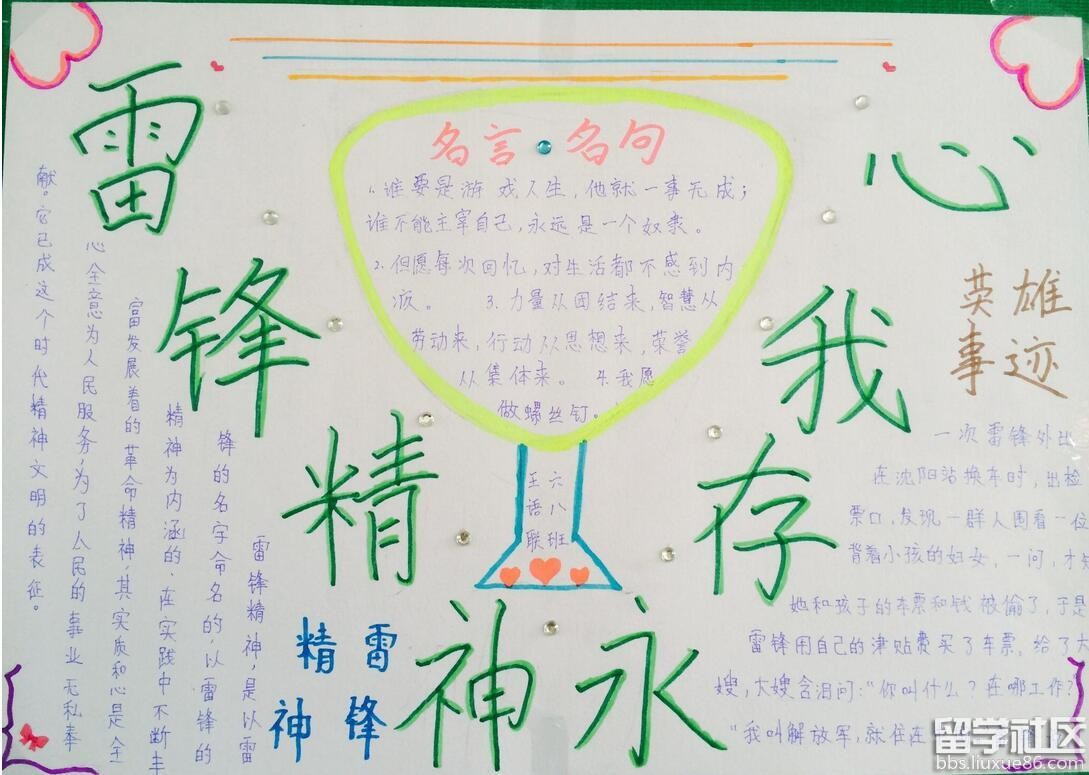 雷
锋
精
神
永
存
我
心
名言·名句
1.谁要是游戏人生,他就一事无成;
谁不能主宰自己,永远是一个奴隶。
2.但愿每次回忆,对生活都不感到内
疚。 3.力量从团结来,智慧从
劳动来,行动从思想来,荣誉
从集体来。 4.我愿
做螺丝钉。
六八班
王语联
雷锋
精神
雷锋精神,是以雷
锋的名字命名的、以雷锋的
精神为内涵的、在实践中不断丰
富发展着的革命精神,其实质和心是全
心全意为人民服务,为了人民的事业无私奉
献。它已成这个时代精神文明的表征。
英雄
事迹
一次雷锋外出
在沈阳站换车时,出检
票口,发现一群人围看一位
背着小孩的妇女,一问,才知
她和孩子的车票和钱被偷了,于是
雷锋用自己的津贴费买了车票。给了大
嫂,大嫂含泪问:“你叫什么?在哪工作?
“我叫解放军,就住在
留学社区
bbs.liuxue86.com